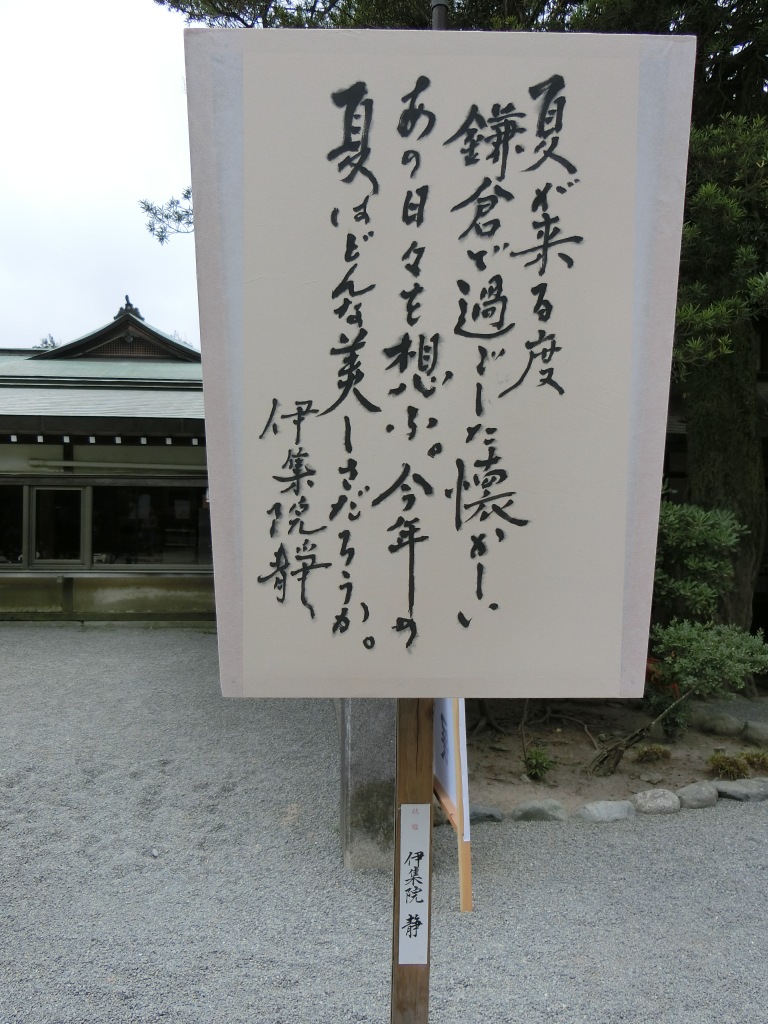 夏が来る度
鎌倉で過ごした懐かしい
あの日々を想ふ。今年の
夏はどんな美しさだろうか。
伊集院静
伊集院 静